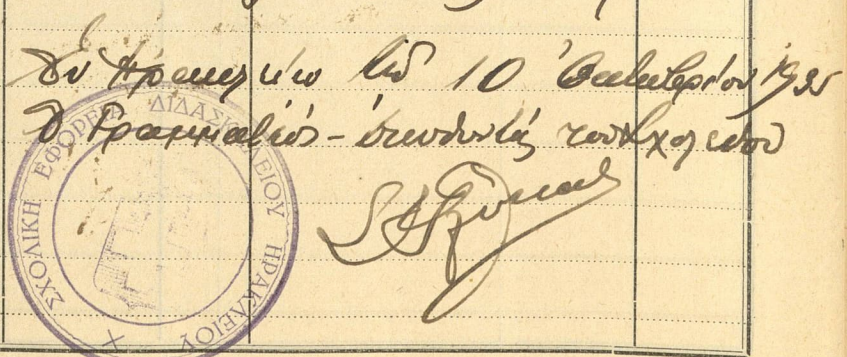 Εν Ηρακλείω τη 10 Οκτωβρίου 1935
Ο Γραμματεύς - διευθυντής του Σχολείου
ΣΧΟΛΙΚΗ ΕΦΟΡΕΙΑ ΔΙΔΑΣΚΑΛΕΙΟΥ ΗΡΑΚΛΕΙΟΥ